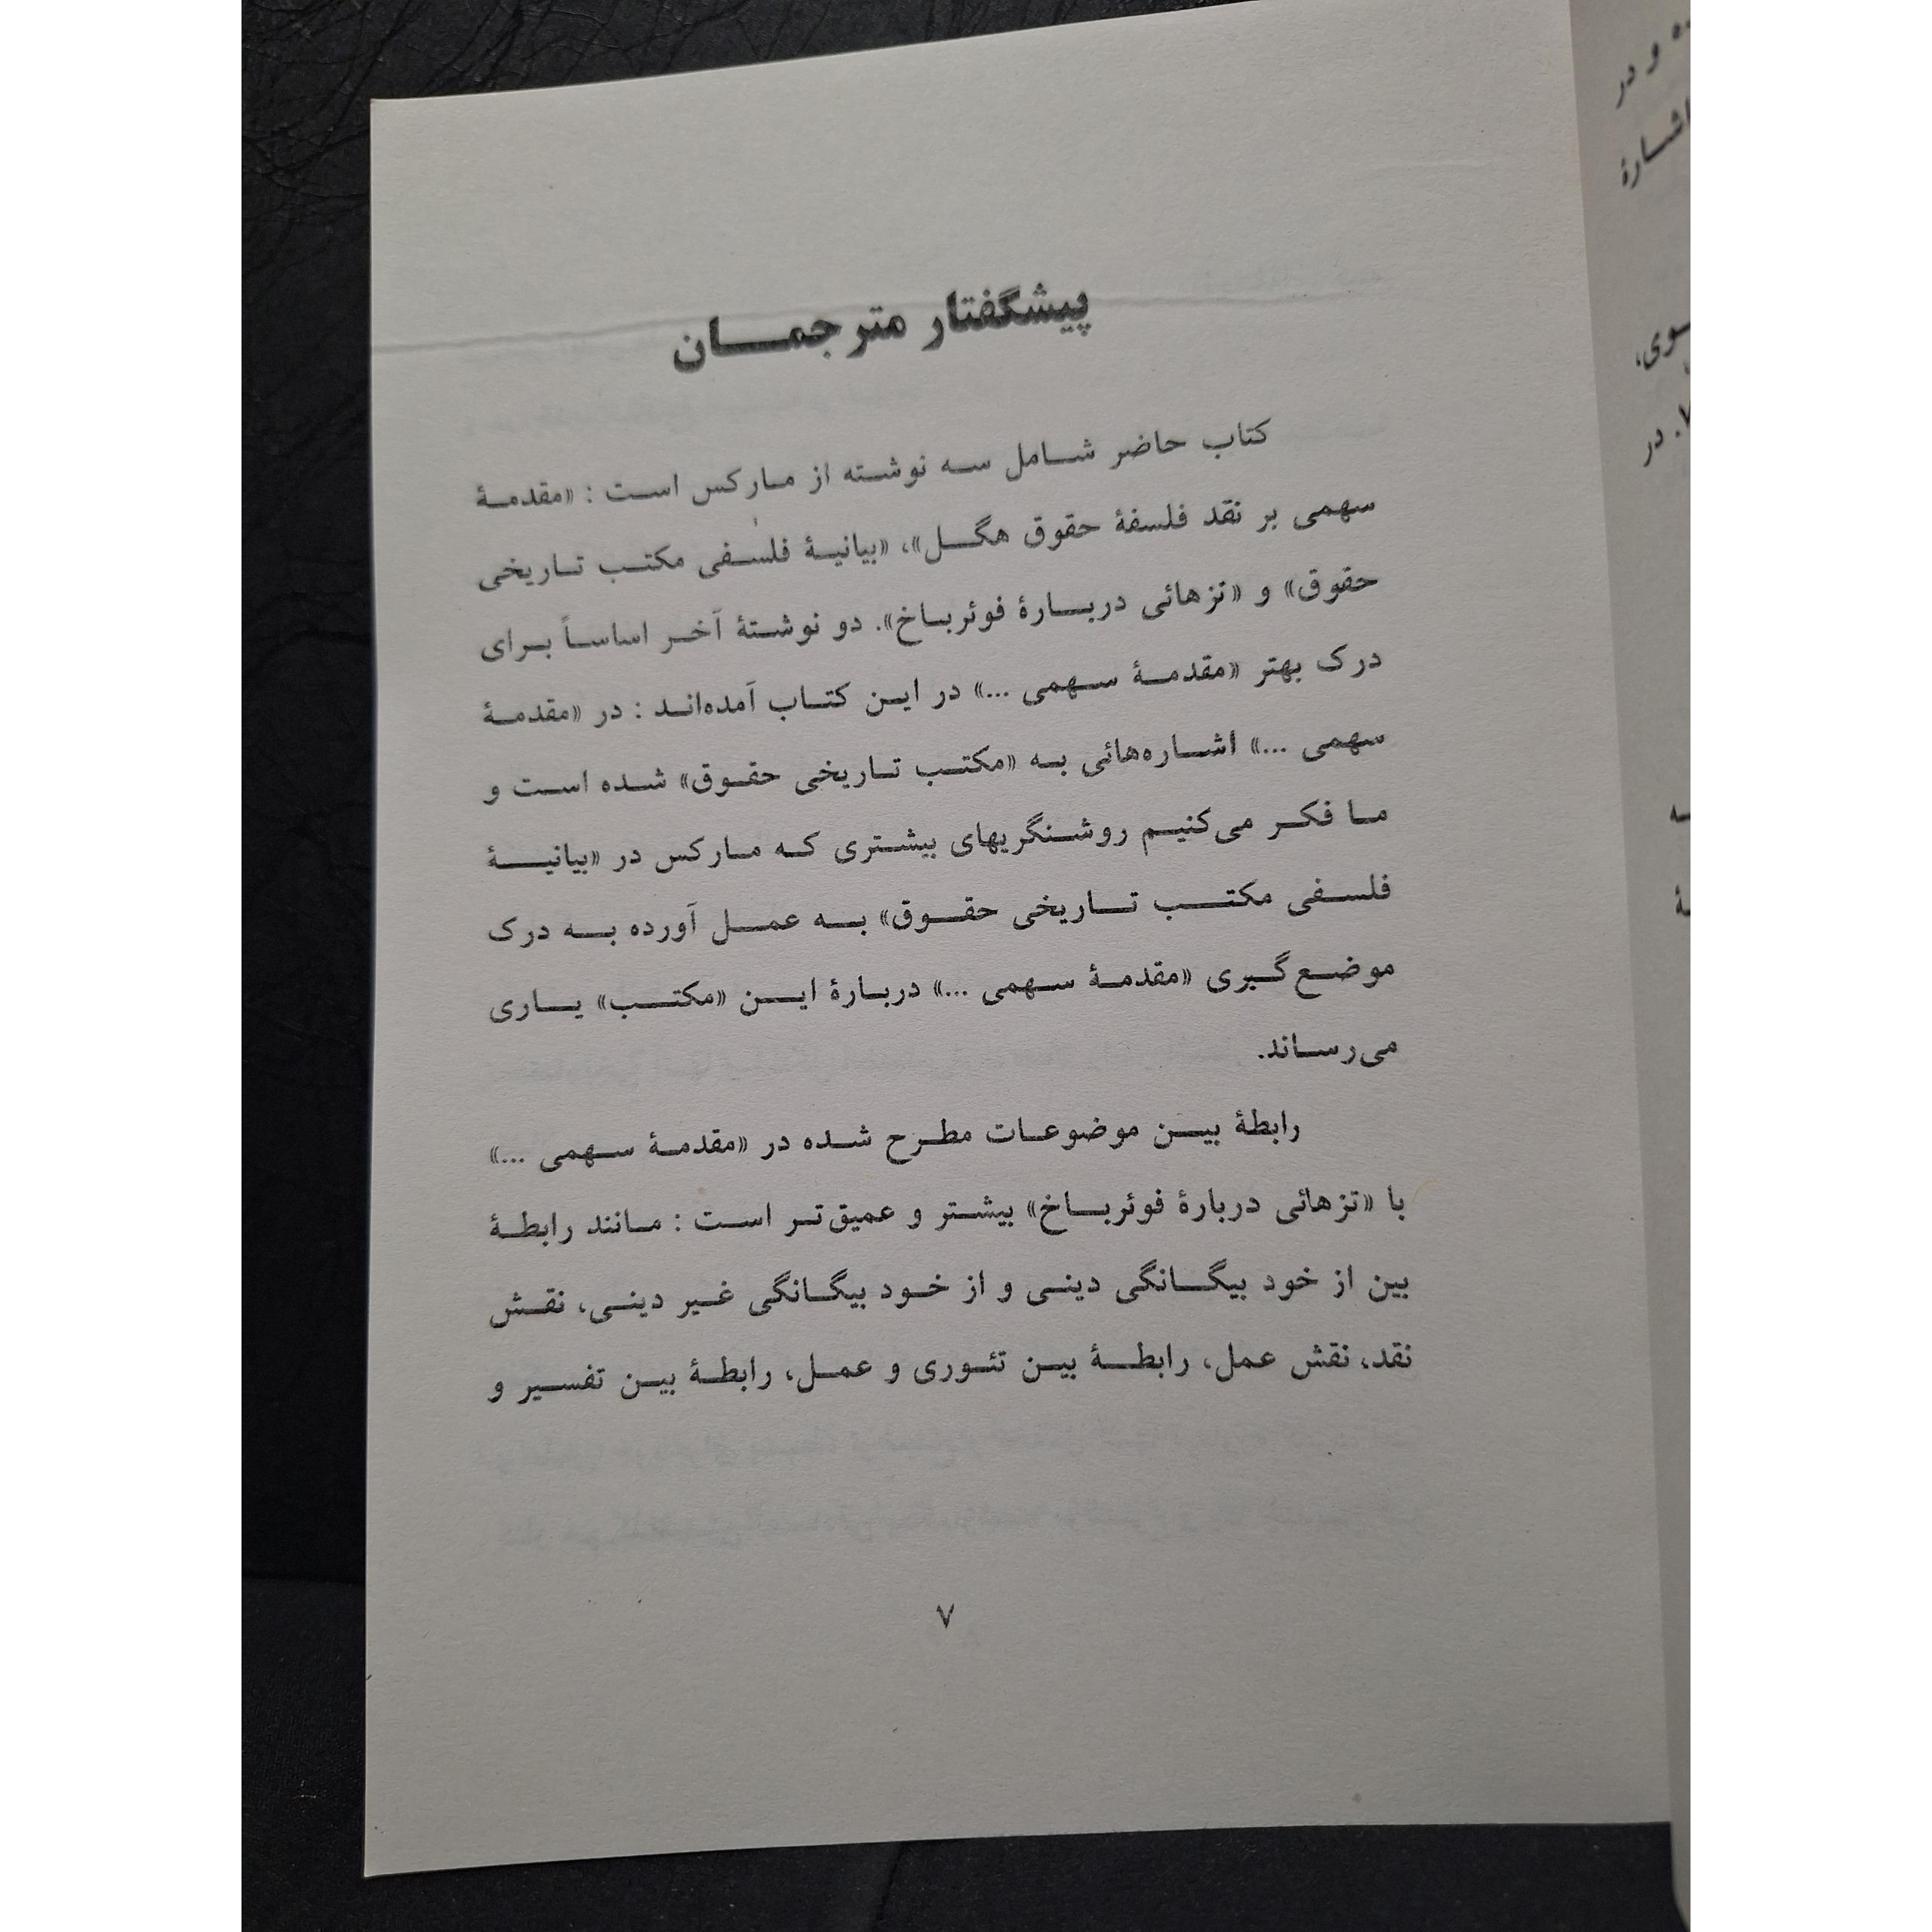 پیشگفتار مترجمان
کتاب حاضر شامل سه نوشته از مارکس است : «مقدمهٔ
سهمی بر نقد فلسفهٔ حقوق هگل»، «بیانیهٔ فلسفی مکتب تاریخی
حقوق» و «تزهائی دربارهٔ فوئرباخ». دو نوشتهٔ آخر اساساً برای
درک بهتر «مقدمهٔ سهمی ...» در این کتاب آمده‌اند : در «مقدمهٔ
سهمی ...» اشاره‌هائی به «مکتب تاریخی حقوق» شده است و
ما فکر می‌کنیم روشنگریهای بیشتری که مارکس در «بیانیهٔ
فلسفی مکتب تاریخی حقوق» به عمل آورده به درک
موضع‌گیری «مقدمهٔ سهمی ...» دربارهٔ این «مکتب» یاری
می‌رساند.
رابطهٔ بین موضوعات مطرح شده در «مقدمهٔ سهمی ...»
با «تزهائی دربارهٔ فوئرباخ» بیشتر و عمیق‌تر است : مانند رابطهٔ
بین از خود بیگانگی دینی و از خود بیگانگی غیر دینی، نقش
نقد، نقش عمل، رابطهٔ بین تئوری و عمل، رابطهٔ بین تفسیر و
۷
و در
اشارهٔ
در